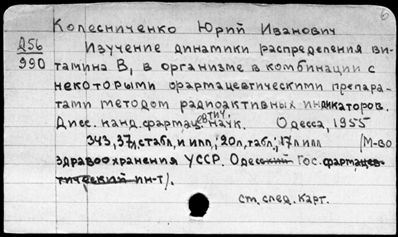 б
Колесниченко Юрий Иванович
Д56
990
Изучение динамики распределения ви-
тамина В, в организме в комбинации с
некоторыми фармацевтическими препара-
тами методом радиоактивных индикаторов.
Дисс. канд. фармацевтич. наук. Одесса, 1955
343, 37л, с табл. и илл; 20л, табл; 17л илл (М-во
здравоохранения УССР. Одесский Гос. фармацев-
тический ин-т).
см. след. карт.